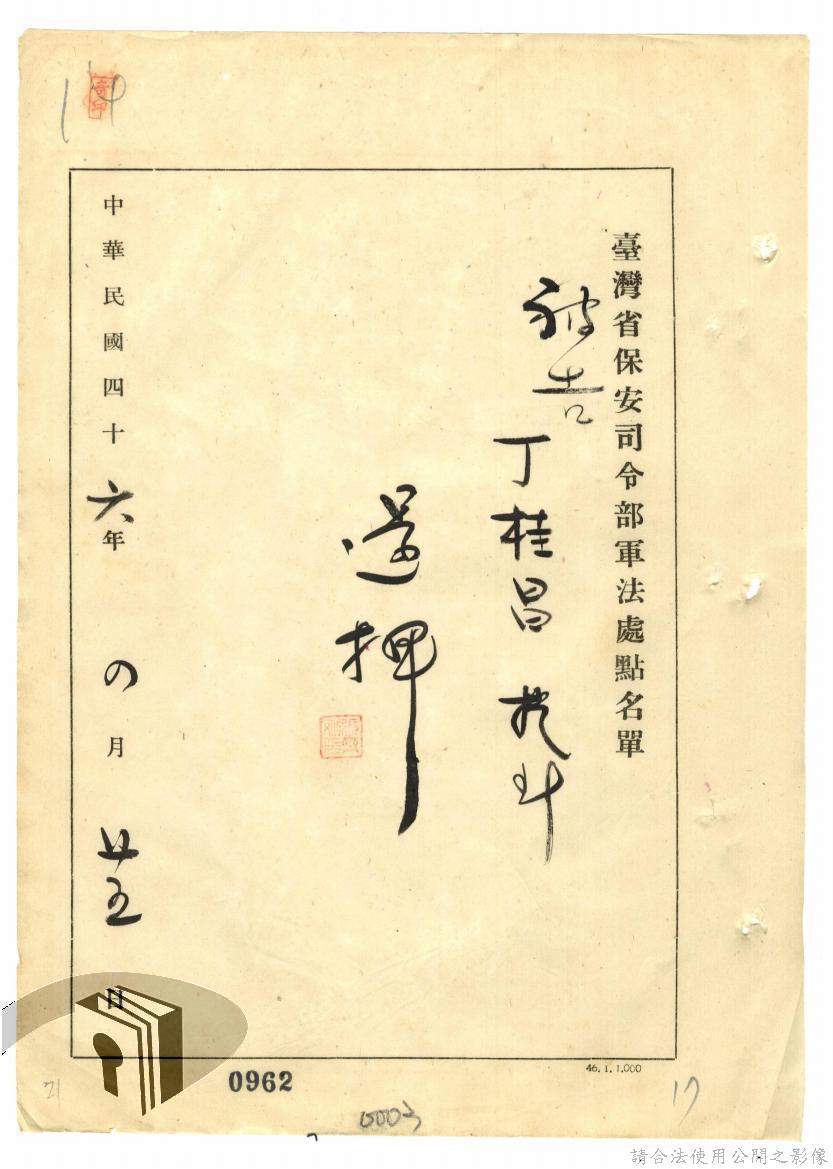 臺灣省保安司令部軍法處點名單
被告
丁桂昌 抗引
還押
中華民國四十六年四月廿五日
0962
0003
46. 1. 1.000
17
21
請合法使用公開之影像